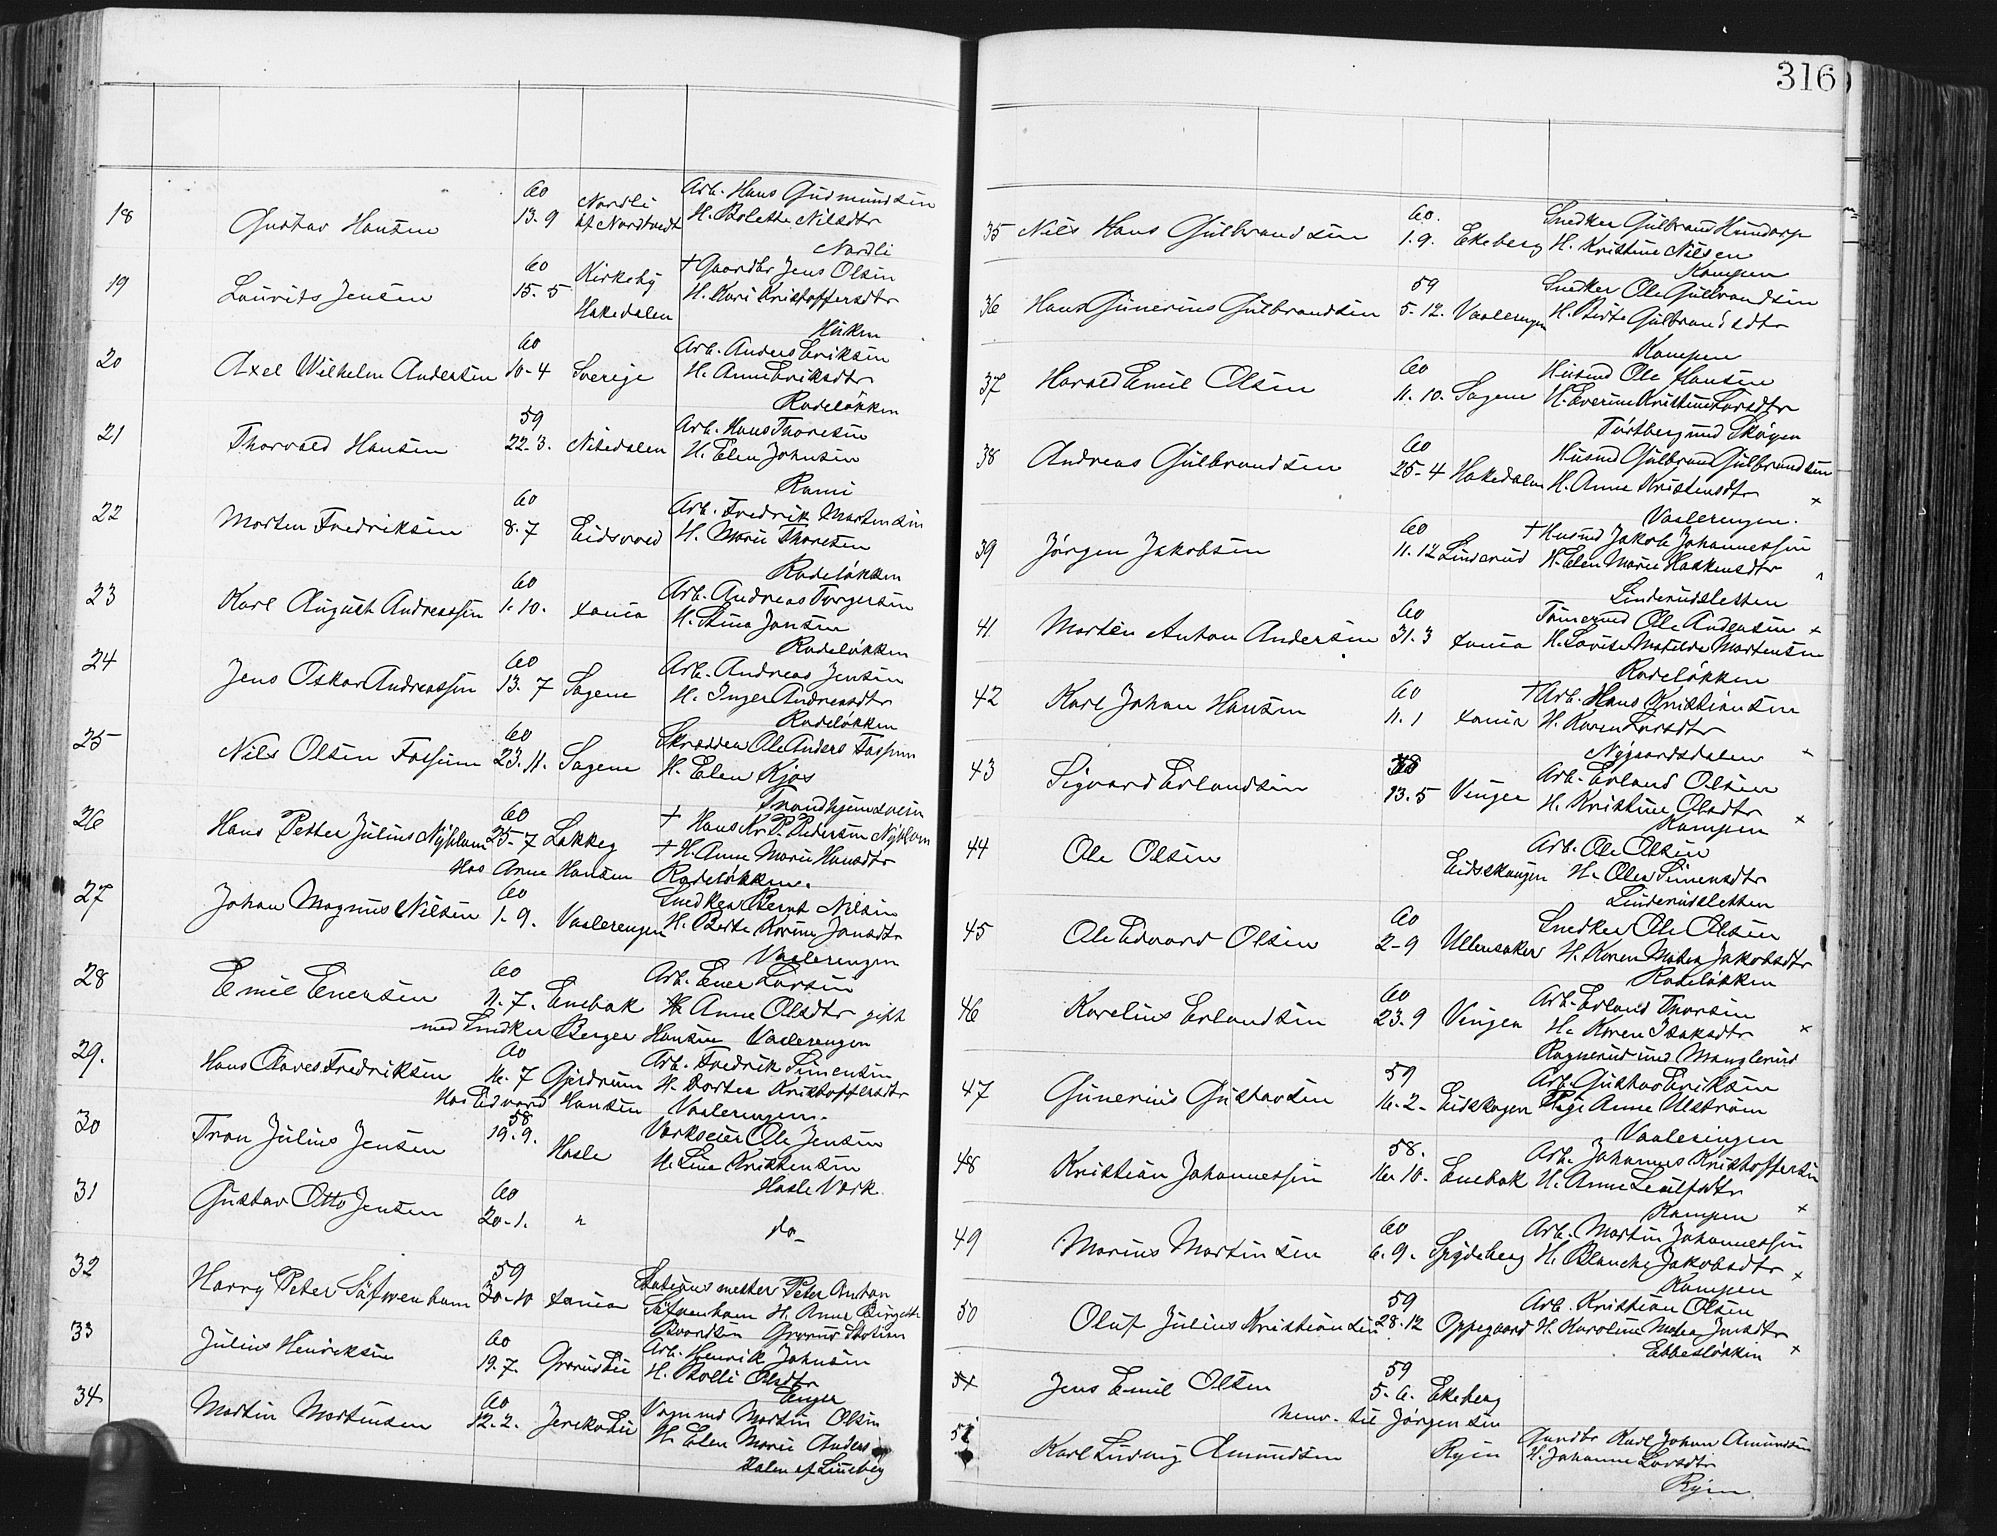 316
18 Gustav Hansen 60 13. 9 Nordli af Nordtvedt Arb. Hans Gudmundsen
H. Bolette Nilsdtr
Nordli
19 Laurits Jensen 60 15. 5 Kirkeby Hakedalen † Gaardbr Jens Olsen
H. Kari Kristoffersdtr
20 Axel Wilhelm Andersen 60 10-4 Sverige Arb. Anders Eriksen
H. Anne Eriksdtr
Rodeløkken
21 Thorvald Hansen 59 22-3. Nitedalen Arb. Hans Thoresen
H. Elen Johnsen
22 Morten Fredriksen 60 8. 7 Eidsvold Arb. Fredrik Mortensen
H. Marie Thoresen
Rodeløkken
23 Karl August Andreassen 60 1. 10. xania Arb. Andreas Torgersen
H. Stina Jansen
Rodeløkken
24 Jens Oskar Andreassen 60 13. 7 Sagene Arb. Andreas Jensen
H. Inger Andreasdtr
Rodeløkken
25 Nils Olsen Fossum 60 23. 11. Sagene Skrædder Ole Anders Fossum
H. Elen Kjos
Trondhjemsveien
26 Hans Petter Julius Nyblom 60 25-7 Lakkeg † Hans Kr. P. Pedersen Nyblom
† H. Anne Marie Hansdtr
Hos Anne Hansen Rodeløkken.
27 Johan Magnus Nilsen 60 1. 9. Vaalerengen Snedker Bernt Nilsen
H. Berte Karine Jansdtr
Vaalerengen
28 Emil Enersen 60 11. 7. Enebak Arb. Ener Larsen
H. Anne Olsdtr gift
med Snedker Berger Hansen Vaalerengen
29. Hans Claves Fredriksen 60 16. 7 Gjerdrum Arb. Fredrik Simensen
H. Dortea Kristoffersdtr
Hos Edvard Hansen Vaalerengen.
30 Tron Julius Jensen 58 19. 9. Hasle Værkseier Ole Jensen
H. Lina Kristensen
Hasle Værk.
31 Gustav Otto Jensen 60 20-1. " do
32 Harry Peter Säfwenham 59 30-10 xania Stationsmester Peter Anton
Säfvenham H. Anne Birgitte
Grorud Station
33 Julius Henriksen 60 19. 7. Grorudlie Arb. Henrik Johnsen
H. Bolli Olsdtr
34 Martin Martinsen 60 12. 2. Jerikolie Vognmd Martin Olsen
H. Elen Marie Anders
Dalen af Lindeberg
35 Nils Hans Gulbrandsen 60. 1. 9. Ekeberg Snedker Gulbrand Hundorp
H. Kristine Nilsen
Kampen
36 Hans Gunerius Gulbrandsen 59 5-12. Vaalerengen Snedker Ole Gulbrandsen
H. Berte Gulbrandsdtr
Kampen
37 Harald Emil Olsen 60 11. 10. Sagene Husmd Ole Hansen
H. Everine Kristine Larsdtr
Tørtberg und Skøyen
38 Andreas Gulbrandsen 60 25-4 Hakedalen Husmd Gulbran Gulbrandsen
H. Anne Kristensdtr x
Vaalerengen.
39 Jørgen Jakobsen 60 11. 12 Linderud † Husmd Jakob Johannessen
H. Elen Marie Haakensdtr
Linderudsletten
41 Martin Anton Andersen 60 31. 3 xania Tømermd Ole Andersen x
H. Lovise Matilde Mortensen
Rodeløkken
42 Karl Johan Hansen 60 11. 1 xania † Arb. Hans Kristiansen
H. Karen Larsdtr
Nygaardsdalen x
43 Sigvard Erlandsen 13. 5 Vinger Arb. Erland Olsen
H. Kristine Olsdtr
Kampen x
44 Ole Olsen Eidsskougen Arb. Ole Olsen
H. Olea Simensdtr
Linderudsletten
45 Ole Edvard Olsen 60 2-9 Ullensaker Snedker Ole Olsen
H. Karen Mathea Jakobsdtr
Rodeløkken
46 Karelius Erlandsen 60 23. 9 Vinger Arb. Erland Thorsen
H. Karen Isaksdtr x
Ragnerud und Manglerud
47 Gunerius Gustavsen 59 16. 2. Eidskogen Arb. Gustav Eriksen
Pige Anne Ulstrøm
Vaaleringen
48 Kristian Johannessen 58. 16. 10. Enebak Arb. Johannes Kristoffersen
H. Anne
Kampen x
49 Marius Martinsen 60 6. 9. Spydeberg Arb. Martin Johannessen
H. Blanche Jakobsdtr x
Kampen
50 Oluf Julius Kristiansen 59 28. 12 Oppegaard Arb. Kristian Olsen
H. Karoline Mathea Jensdtr
Ebbesløkken x
51 Jens Emil Olsen 59 5. 6. Ekeberg
henv. til Jørgensen
51 Karl Ludvig Amundsen Ryen Gaardbr Karl Johan Amundsen
H. Johanne Larsdtr
Ryen